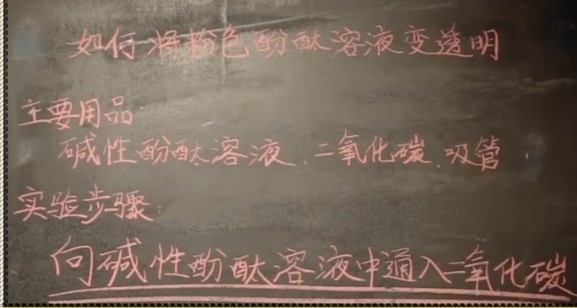 如何将粉色酚酞溶液变透明
主要用品:
碱性酚酞溶液、二氧化碳、吸管
实验步骤:
向碱性酚酞溶液中通入二氧化碳